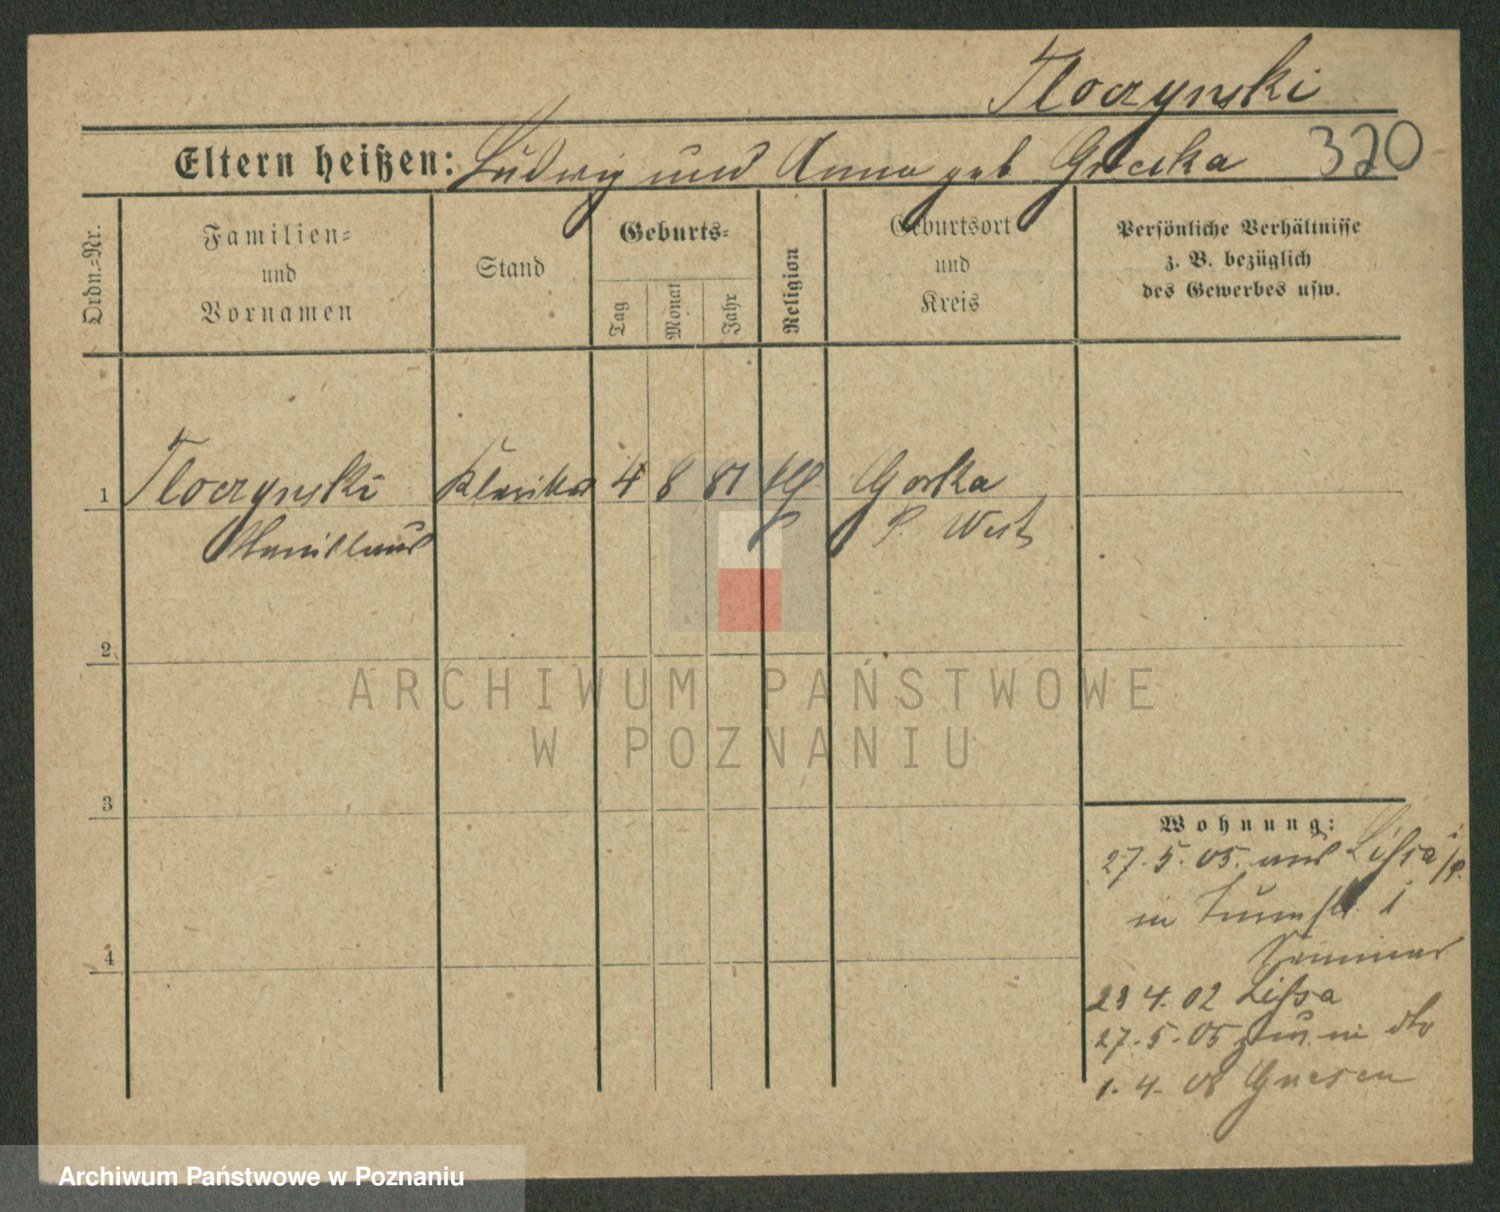 Tloczynski
Eltern heißen: Ludwig und Anna geb 320
Ordn.-Nr.
Familien-
und
Vornamen
Stand
Geburts-
Tag
Monat
Jahr
Religion
Geburtsort
und
Kreis
Persönliche Verhältnisse
z. B. bezüglich
des Gewerbes usw.
1 Tloczynski Kleriker 4 8 81 Gorka
Stanislaus P. West
2
3
4
Wohnung:
27. 5. 05. aus Lissa i/P.
in
Seminar
23 4. 02 Lissa
27. 5. 05
1. 4. 08 Gnesen
ARCHIWUM PAŃSTWOWE
W POZNANIU
Archiwum Państwowe w Poznaniu